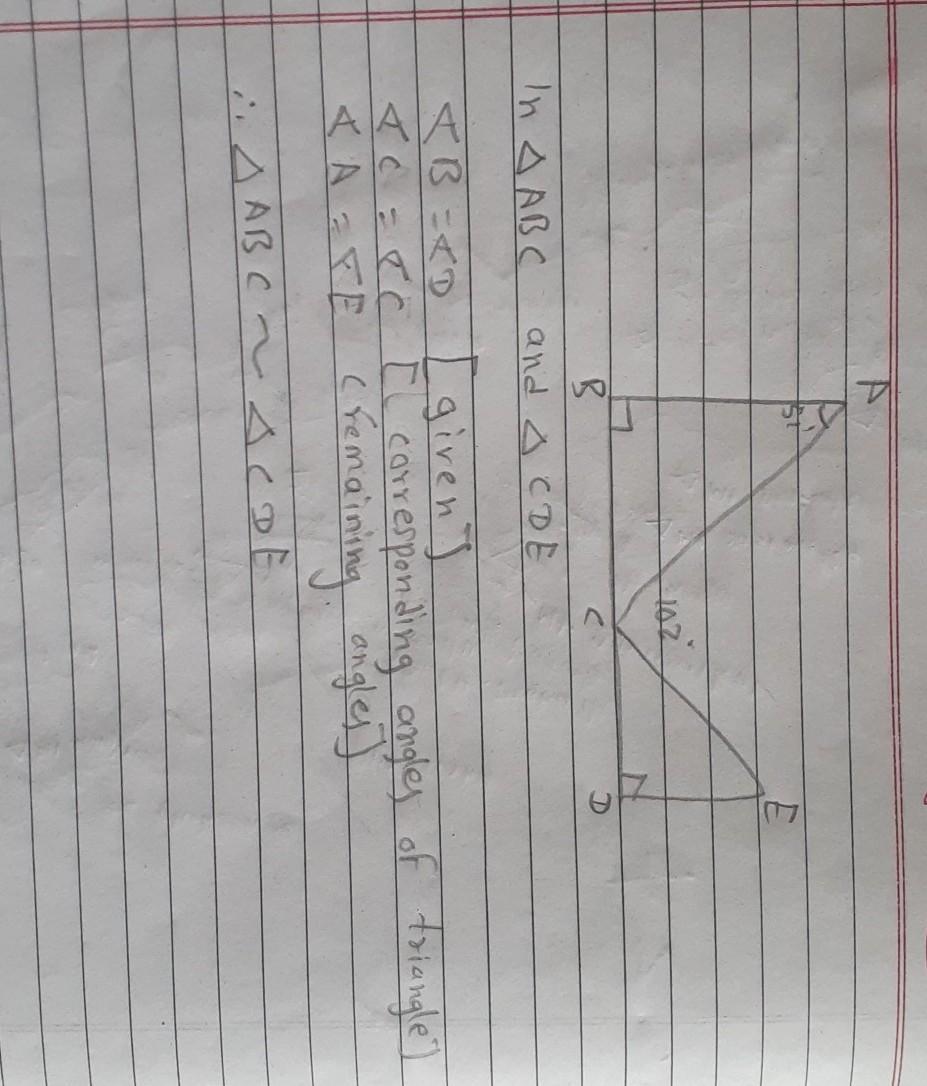 A
51°
E
102°
B
C
D
In △ABC and △CDE
∡B = ∡D [given]
∡C = ∡C [corresponding angles of triangle]
∡A = ∡E (remaining angles)
∴ △ABC ~ △CDE